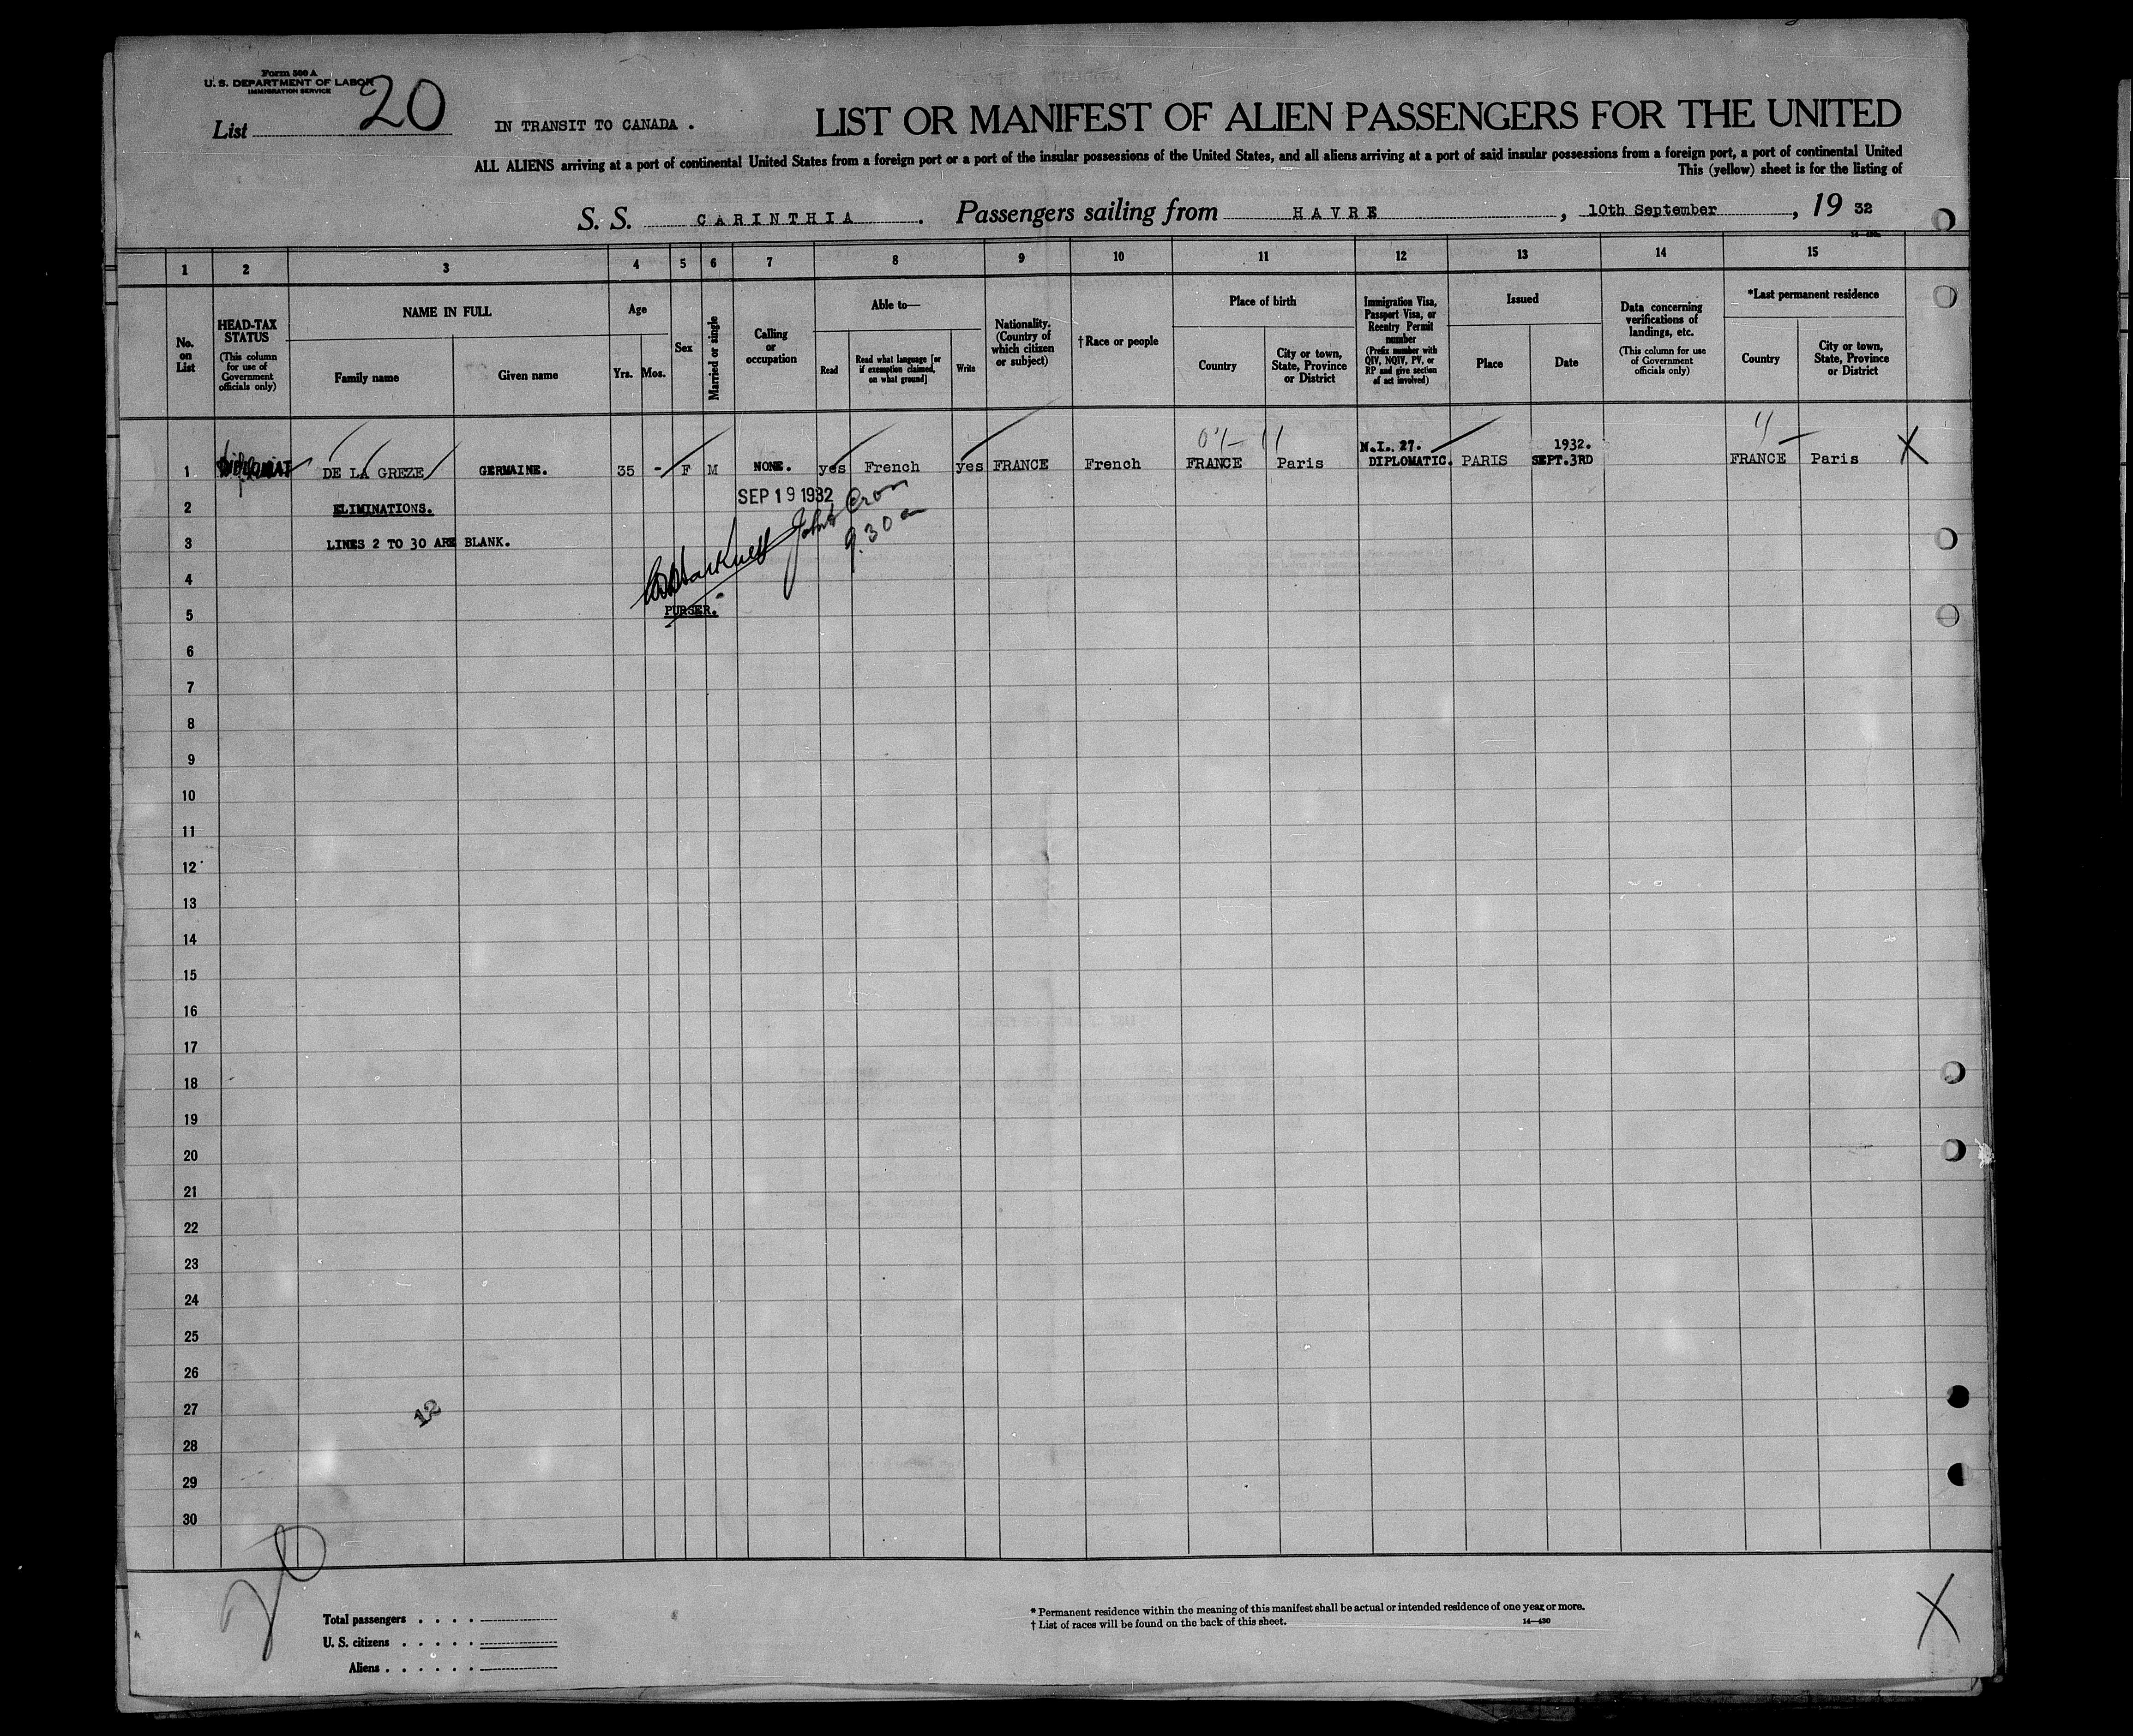 Form 500 A
U. S. DEPARTMENT OF LABOR
IMMIGRATION SERVICE
List 20
IN TRANSIT TO CANADA .
LIST OR MANIFEST OF ALIEN PASSENGERS FOR THE UNITED
ALL ALIENS arriving at a port of continental United States from a foreign port or a port of the insular possessions of the United States, and all aliens arriving at a port of said insular possessions from a foreign port, a port of continental United
This (yellow) sheet is for the listing of
S. S. CARINTHIA . Passengers sailing from HAVRE , 10th September , 19 32
1 2 3 4 5 6 7 8 9 10 11 12 13 14 15
No. on List
HEAD-TAX STATUS
(This column for use of Government officials only)
NAME IN FULL
Family name
Given name
Age
Yrs. Mos.
Sex
Married or single
Calling or occupation
Able to—
Read
Read what language [or if exemption claimed, on what ground]
Write
Nationality. (Country of which citizen or subject)
† Race or people
Place of birth
Country
City or town, State, Province or District
Immigration Visa, Passport Visa, or Reentry Permit number
(Prefix number with QIV, NQIV, PV, or RP and give section of act involved)
Issued
Place
Date
Data concerning verifications of landings, etc.
(This column for use of Government officials only)
*Last permanent residence
Country
City or town, State, Province or District
N.I. 27. 1932.
1 DIPLOMAT DE LA GREZE GERMAINE. 35 - F M NONE. yes French yes FRANCE French FRANCE Paris DIPLOMATIC. PARIS SEPT.3RD FRANCE Paris X
SEP 19 1932
2 ELIMINATIONS.
9.30
3 LINES 2 TO 30 ARE BLANK.
4
5 PURSER.
6
7
8
9
10
11
12
13
14
15
16
17
18
19
20
21
22
23
24
25
26
27
12
28
29
30
20
X
Total passengers . . . .
U. S. citizens . . . . .
Aliens . . . . . .
* Permanent residence within the meaning of this manifest shall be actual or intended residence of one year or more.
† List of races will be found on the back of this sheet.
14—430